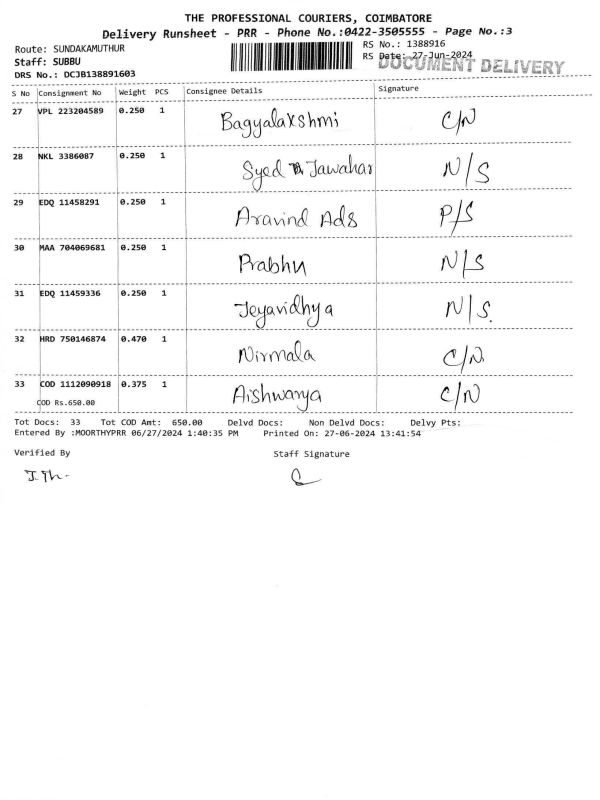 THE PROFESSIONAL COURIERS, COIMBATORE
Delivery Runsheet - PRR - Phone No.:0422-3505555 - Page No.:3
Route: SUNDAKAMUTHUR
RS No.: 1388916
Staff: SUBBU
RS Date: 27-Jun-2024
DOCUMENT DELIVERY
DRS No.: DCJB138891603
S No Consignment No Weight PCS Consignee Details Signature
27 VPL 223204589 0.250 1 Bagyalakshmi C/N
28 NKL 3386087 0.250 1 Syed Jawahar N/S
29 EDQ 11458291 0.250 1 Aravind Ads P/S
30 MAA 704069681 0.250 1 Prabhu N/S
31 EDQ 11459336 0.250 1 Jeyavidhya N/S.
32 HRD 750146874 0.470 1 Nirmala C/N.
33 COD 1112090918 0.375 1 Aishwarya C/N
COD Rs.650.00
Tot Docs: 33 Tot COD Amt: 650.00 Delvd Docs: Non Delvd Docs: Delvy Pts:
Entered By :MOORTHYPRR 06/27/2024 1:40:35 PM Printed On: 27-06-2024 13:41:54
Verified By Staff Signature